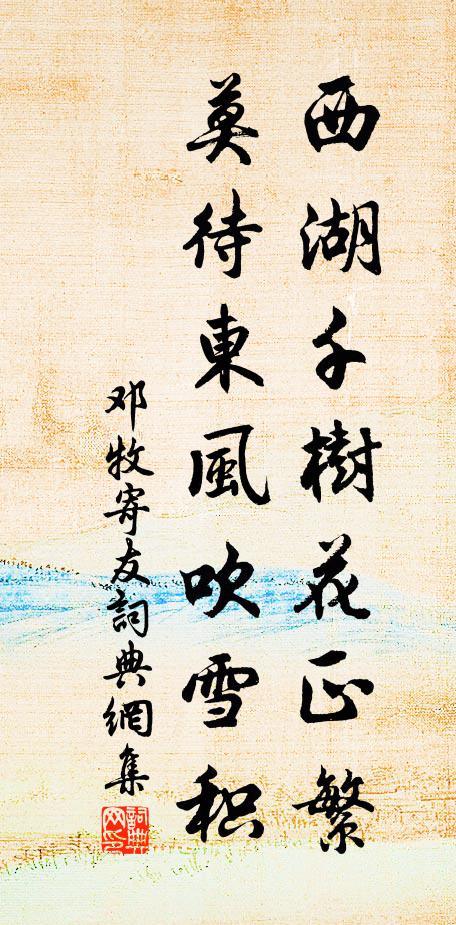 西湖千樹花正繁
莫待東風吹雪积
邓牧寄友詞典網集
詞典網印